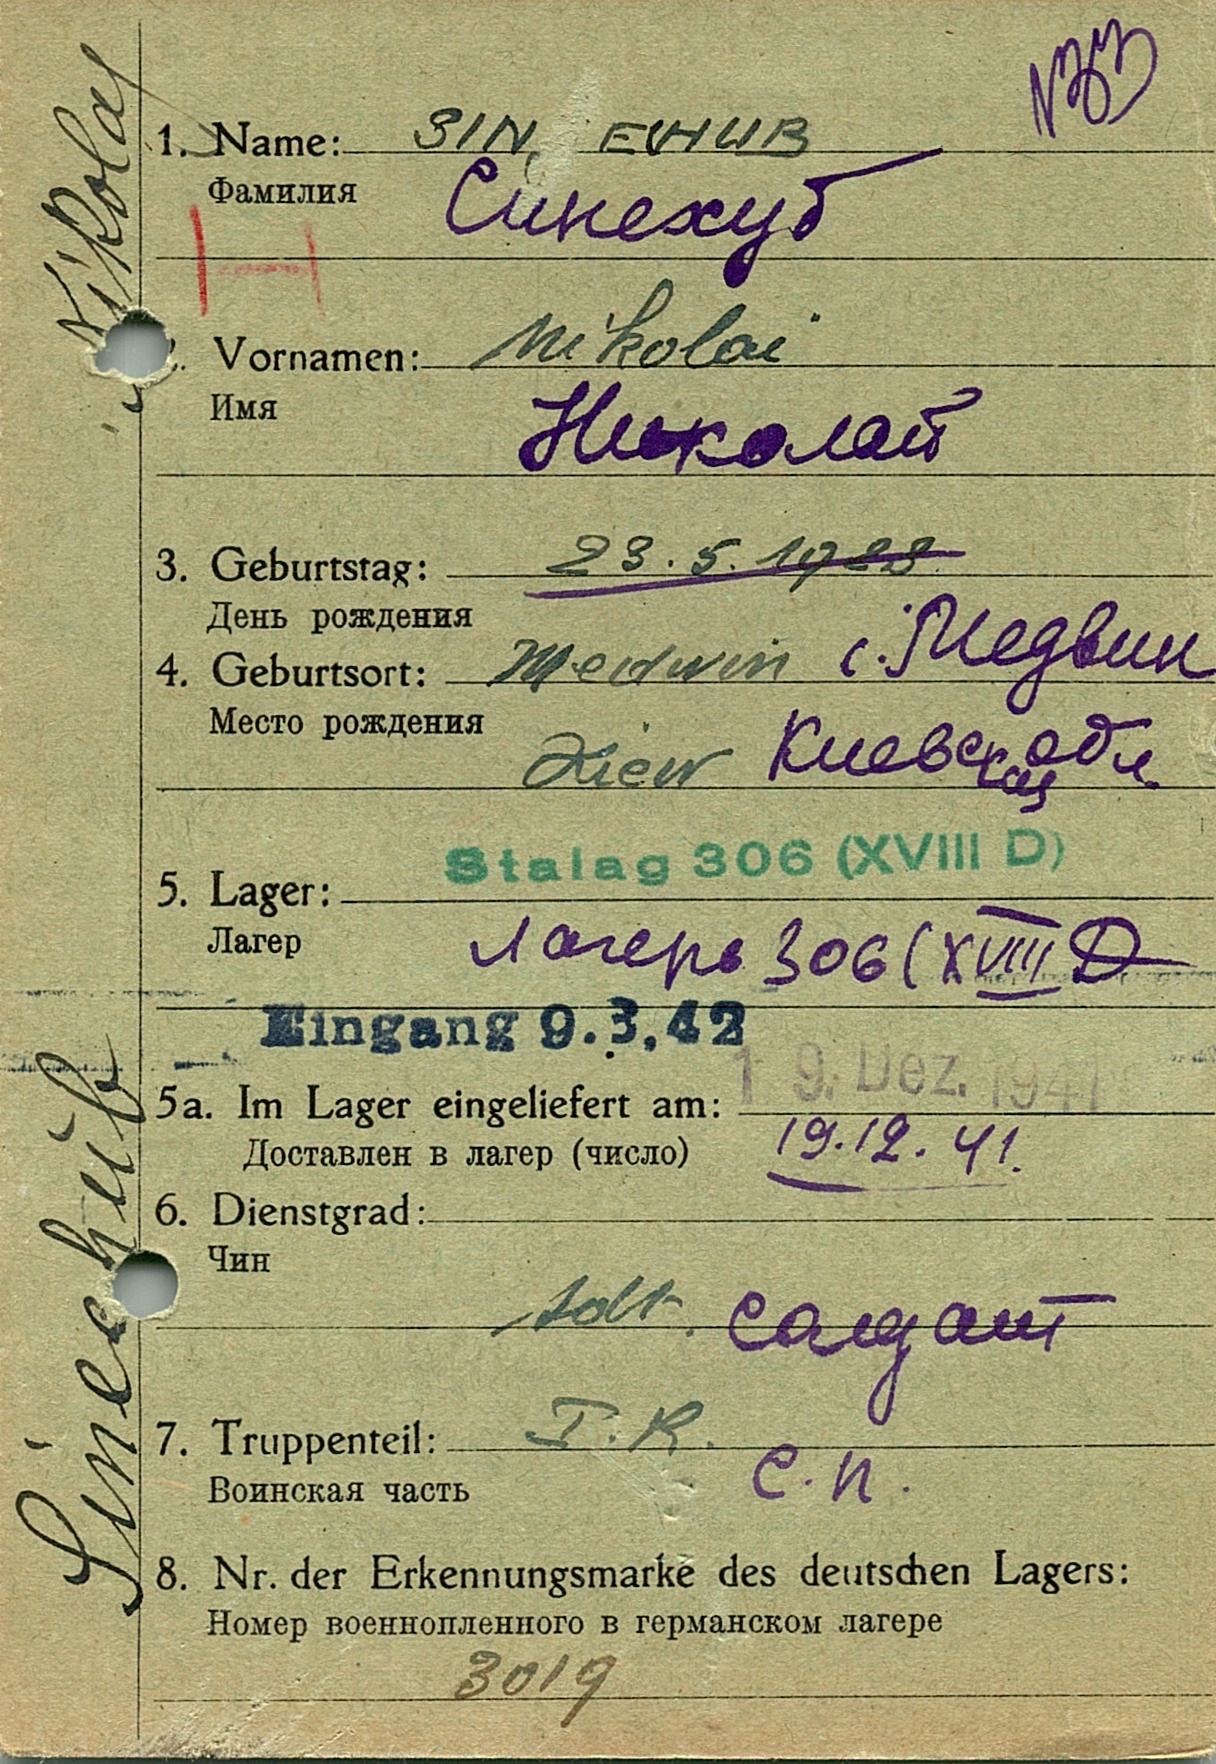 1. Name: SIN EHUB
Фамилия Синехуб
Vornamen: Nikolai
Имя Николай
3. Geburtstag: 23.5.1923
День рождения
4. Geburtsort: Medwin с. Медвин
Место рождения
Kiew Киевская обл.
Stalag 306 (XVIII D)
5. Lager:
Лагерь 306 (XVIII D
Лагер
Eingang 9.3.42
19. Dez. 1941
5a. Im Lager eingeliefert am:
Доставлен в лагер (число) 19.12.41.
6. Dienstgrad:
Чин
Solt. Салдат
7. Truppenteil: I.R.
Воинская часть С.п.
8. Nr. der Erkennungsmarke des deutschen Lagers:
Номер военнопленного в германском лагере
3019
Sinechub Nikolai